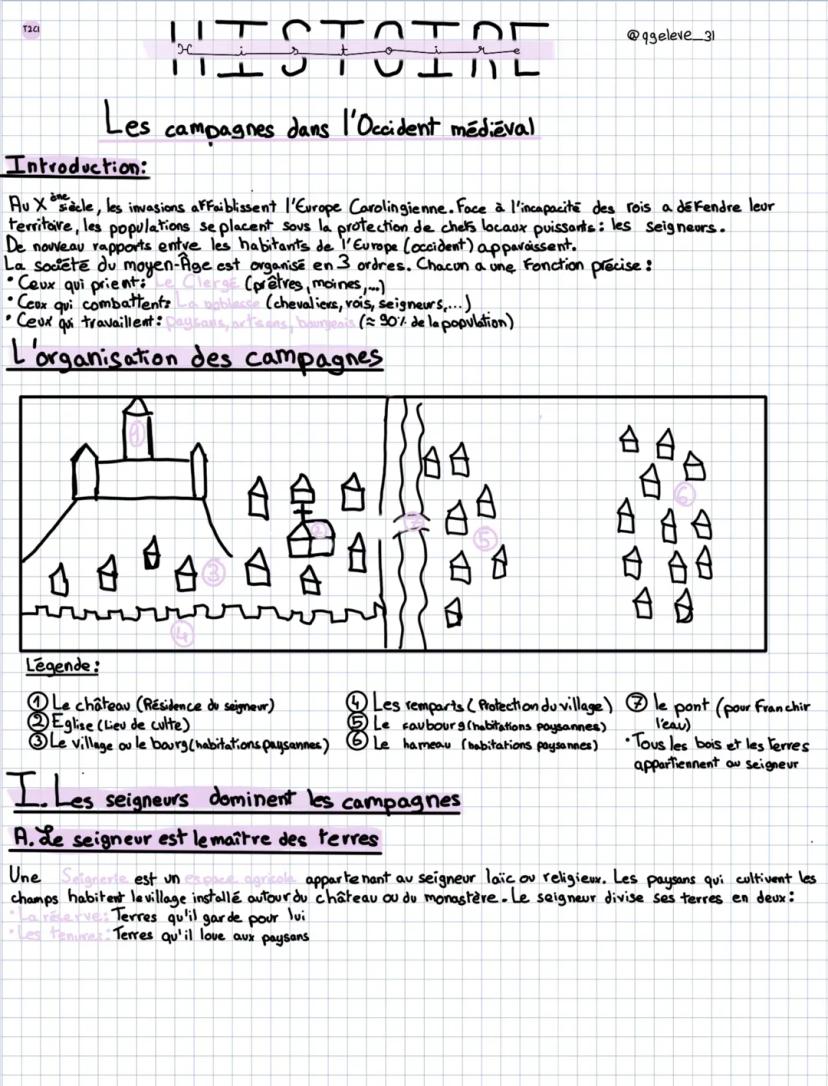 T2C1
HISTOIRE
Histoire
@qgeleve_31
Les campagnes dans l'Occident médiéval
Introduction:
Au Xème siècle, les invasions affaiblissent l'Europe Carolingienne. Face à l'incapacité des rois a défendre leur
territoire, les populations se placent sous la protection de chefs locaux puissants: les seigneurs.
De nouveau rapports entre les habitants de l'Europe (occident) apparaissent.
La société du moyen-Âge est organisé en 3 ordres. Chacun a une fonction précise:
• Ceux qui prient: Le Clergé (prêtres, moines,...)
• Ceux qui combattent: La noblesse (chevaliers, rois, seigneurs,...)
• Ceux qui travaillent: paysans, artisans, bourgeois (≈ 90% de la population)
L'organisation des campagnes
1
2
3
4
5
6
7
Légende:
① Le château (Résidence du seigneur)
② Eglise (Lieu de culte)
③ Le village ou le bourg (habitations paysannes)
④ Les remparts (Protection du village)
⑤ Le faubourg (habitations paysannes)
⑥ Le hameau (habitations paysannes)
⑦ le pont (pour franchir
l'eau)
• Tous les bois et les terres
appartiennent au seigneur
I. Les seigneurs dominent les campagnes
A. Le seigneur est le maître des terres
Une Seigneurie est un espace agricole appartenant au seigneur laïc ou religieux. Les paysans qui cultivent les
champs habitent le village installé autour du château ou du monastère. Le seigneur divise ses terres en deux:
• La réserve: Terres qu'il garde pour lui
• Les tenures: Terres qu'il loue aux paysans